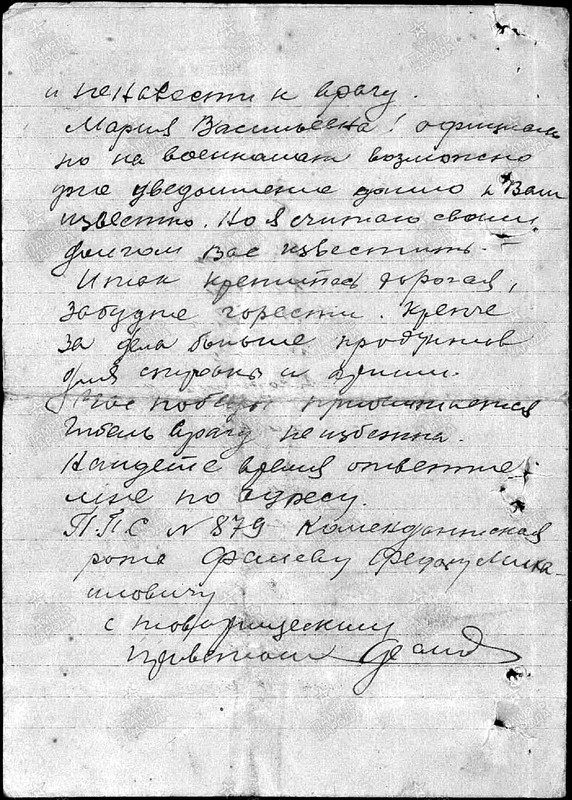 и ненавести к врагу.
Мария Васильевна! официаль
но на военкомат возможно
уже уведомление дошло и Вам
известно. Но я считаю своим
долгом вас известить. =
Итак крепитесь дорогая,
забудте горести. Крепче
за дела больше продуктов
для страны и армии.
Час победы приближается
гибель врагу неизбежна.
Найдете время ответте
мне по адресу.
ППС N 879 Комендантская
рота Фалеву Федору Миха-
иловичу
с товарищеским
приветом